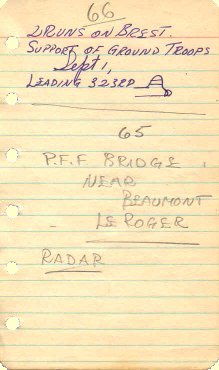 66
2 RUNS ON BREST.
SUPPORT OF GROUND TROOPS
Sept 1,
LEADING 323RD
65
P.F.F BRIDGE.
NEAR
BEAUMONT
LE ROGER
RADAR